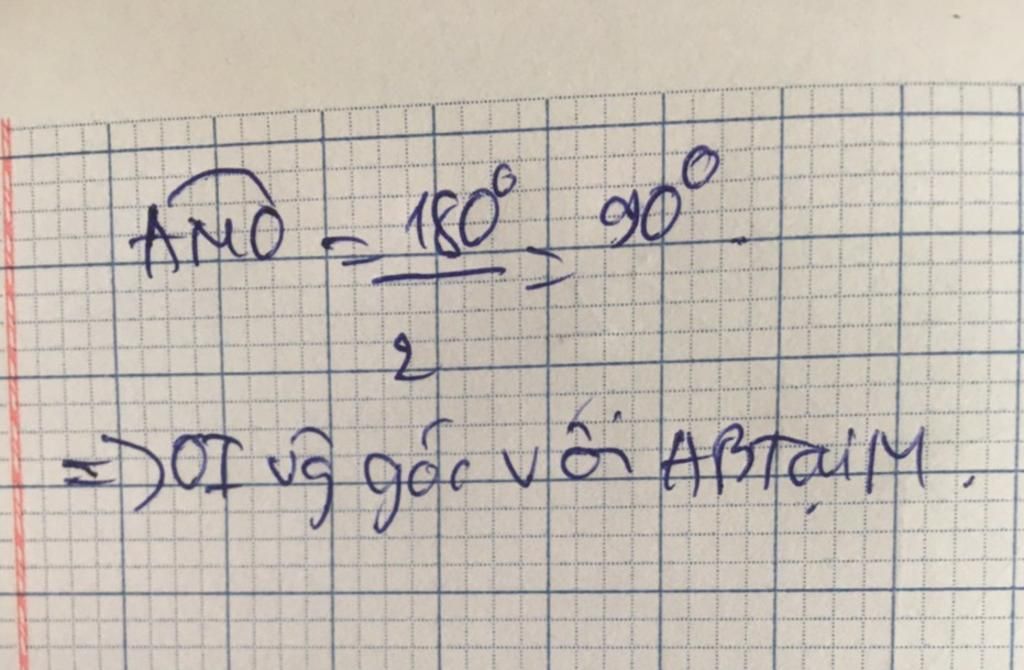 AMO = 180° / 2 = 90°.
=> OI vg góc với AB Tại M.